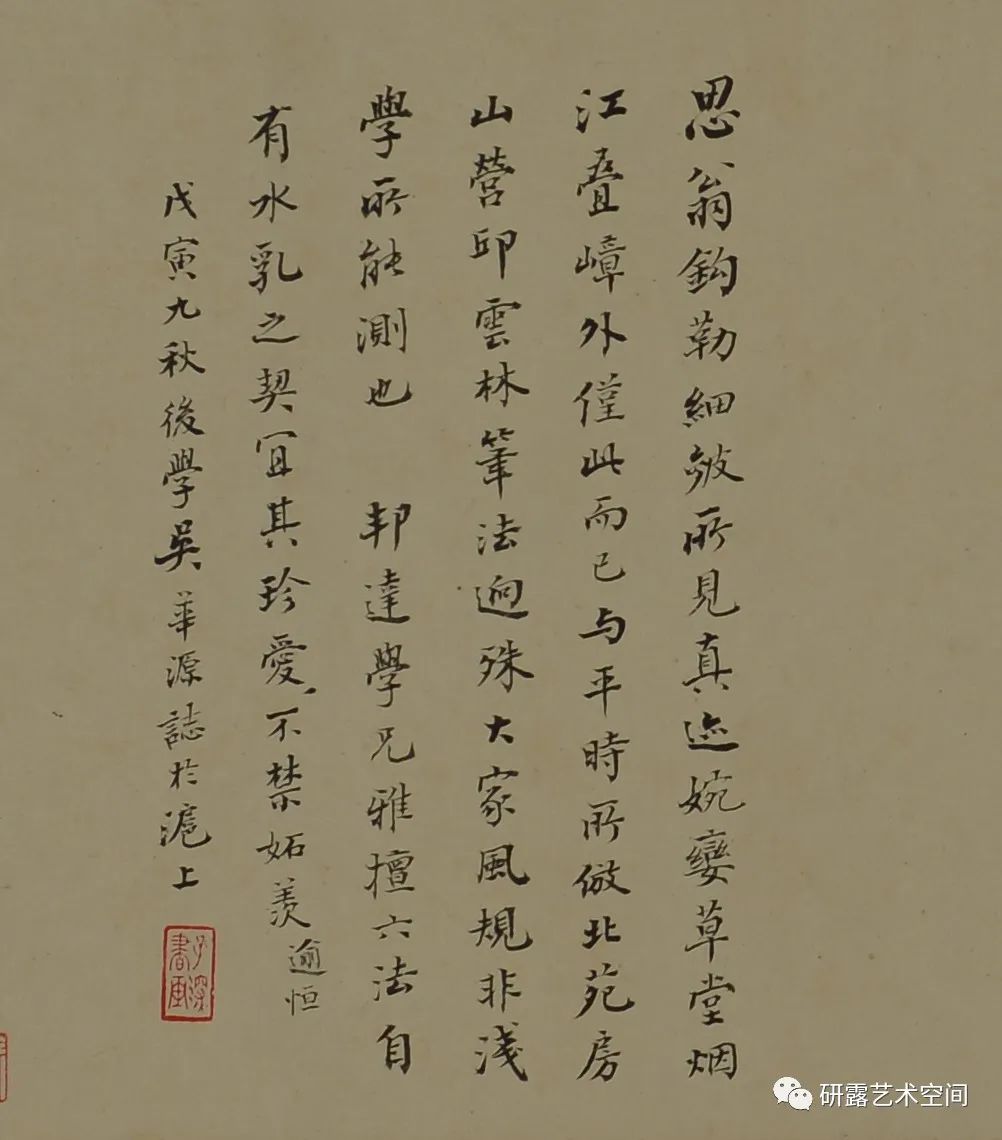 思翁鈎勒細皴所見真迹婉孌草堂烟
江叠嶂外僅此而已与平時所倣北苑房
山營邱雲林筆法迥殊大家風規非淺
學所能測也 邦達學兄雅擅六法自
有水乳之契宜其珍愛、不禁妬羨逾恒
戊寅九秋後學吳華源誌於滬上
子深書画
研露艺术空间